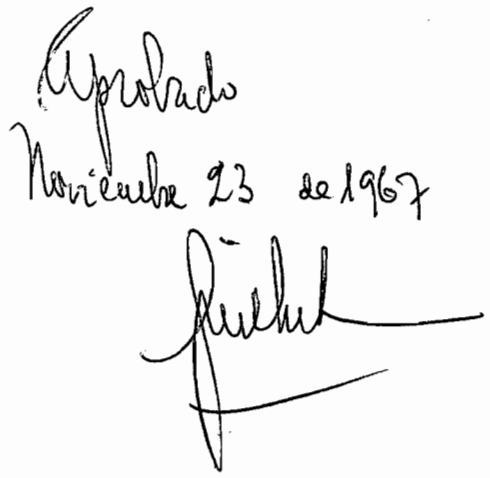 Aprobado
Noviembre 23 de 1967